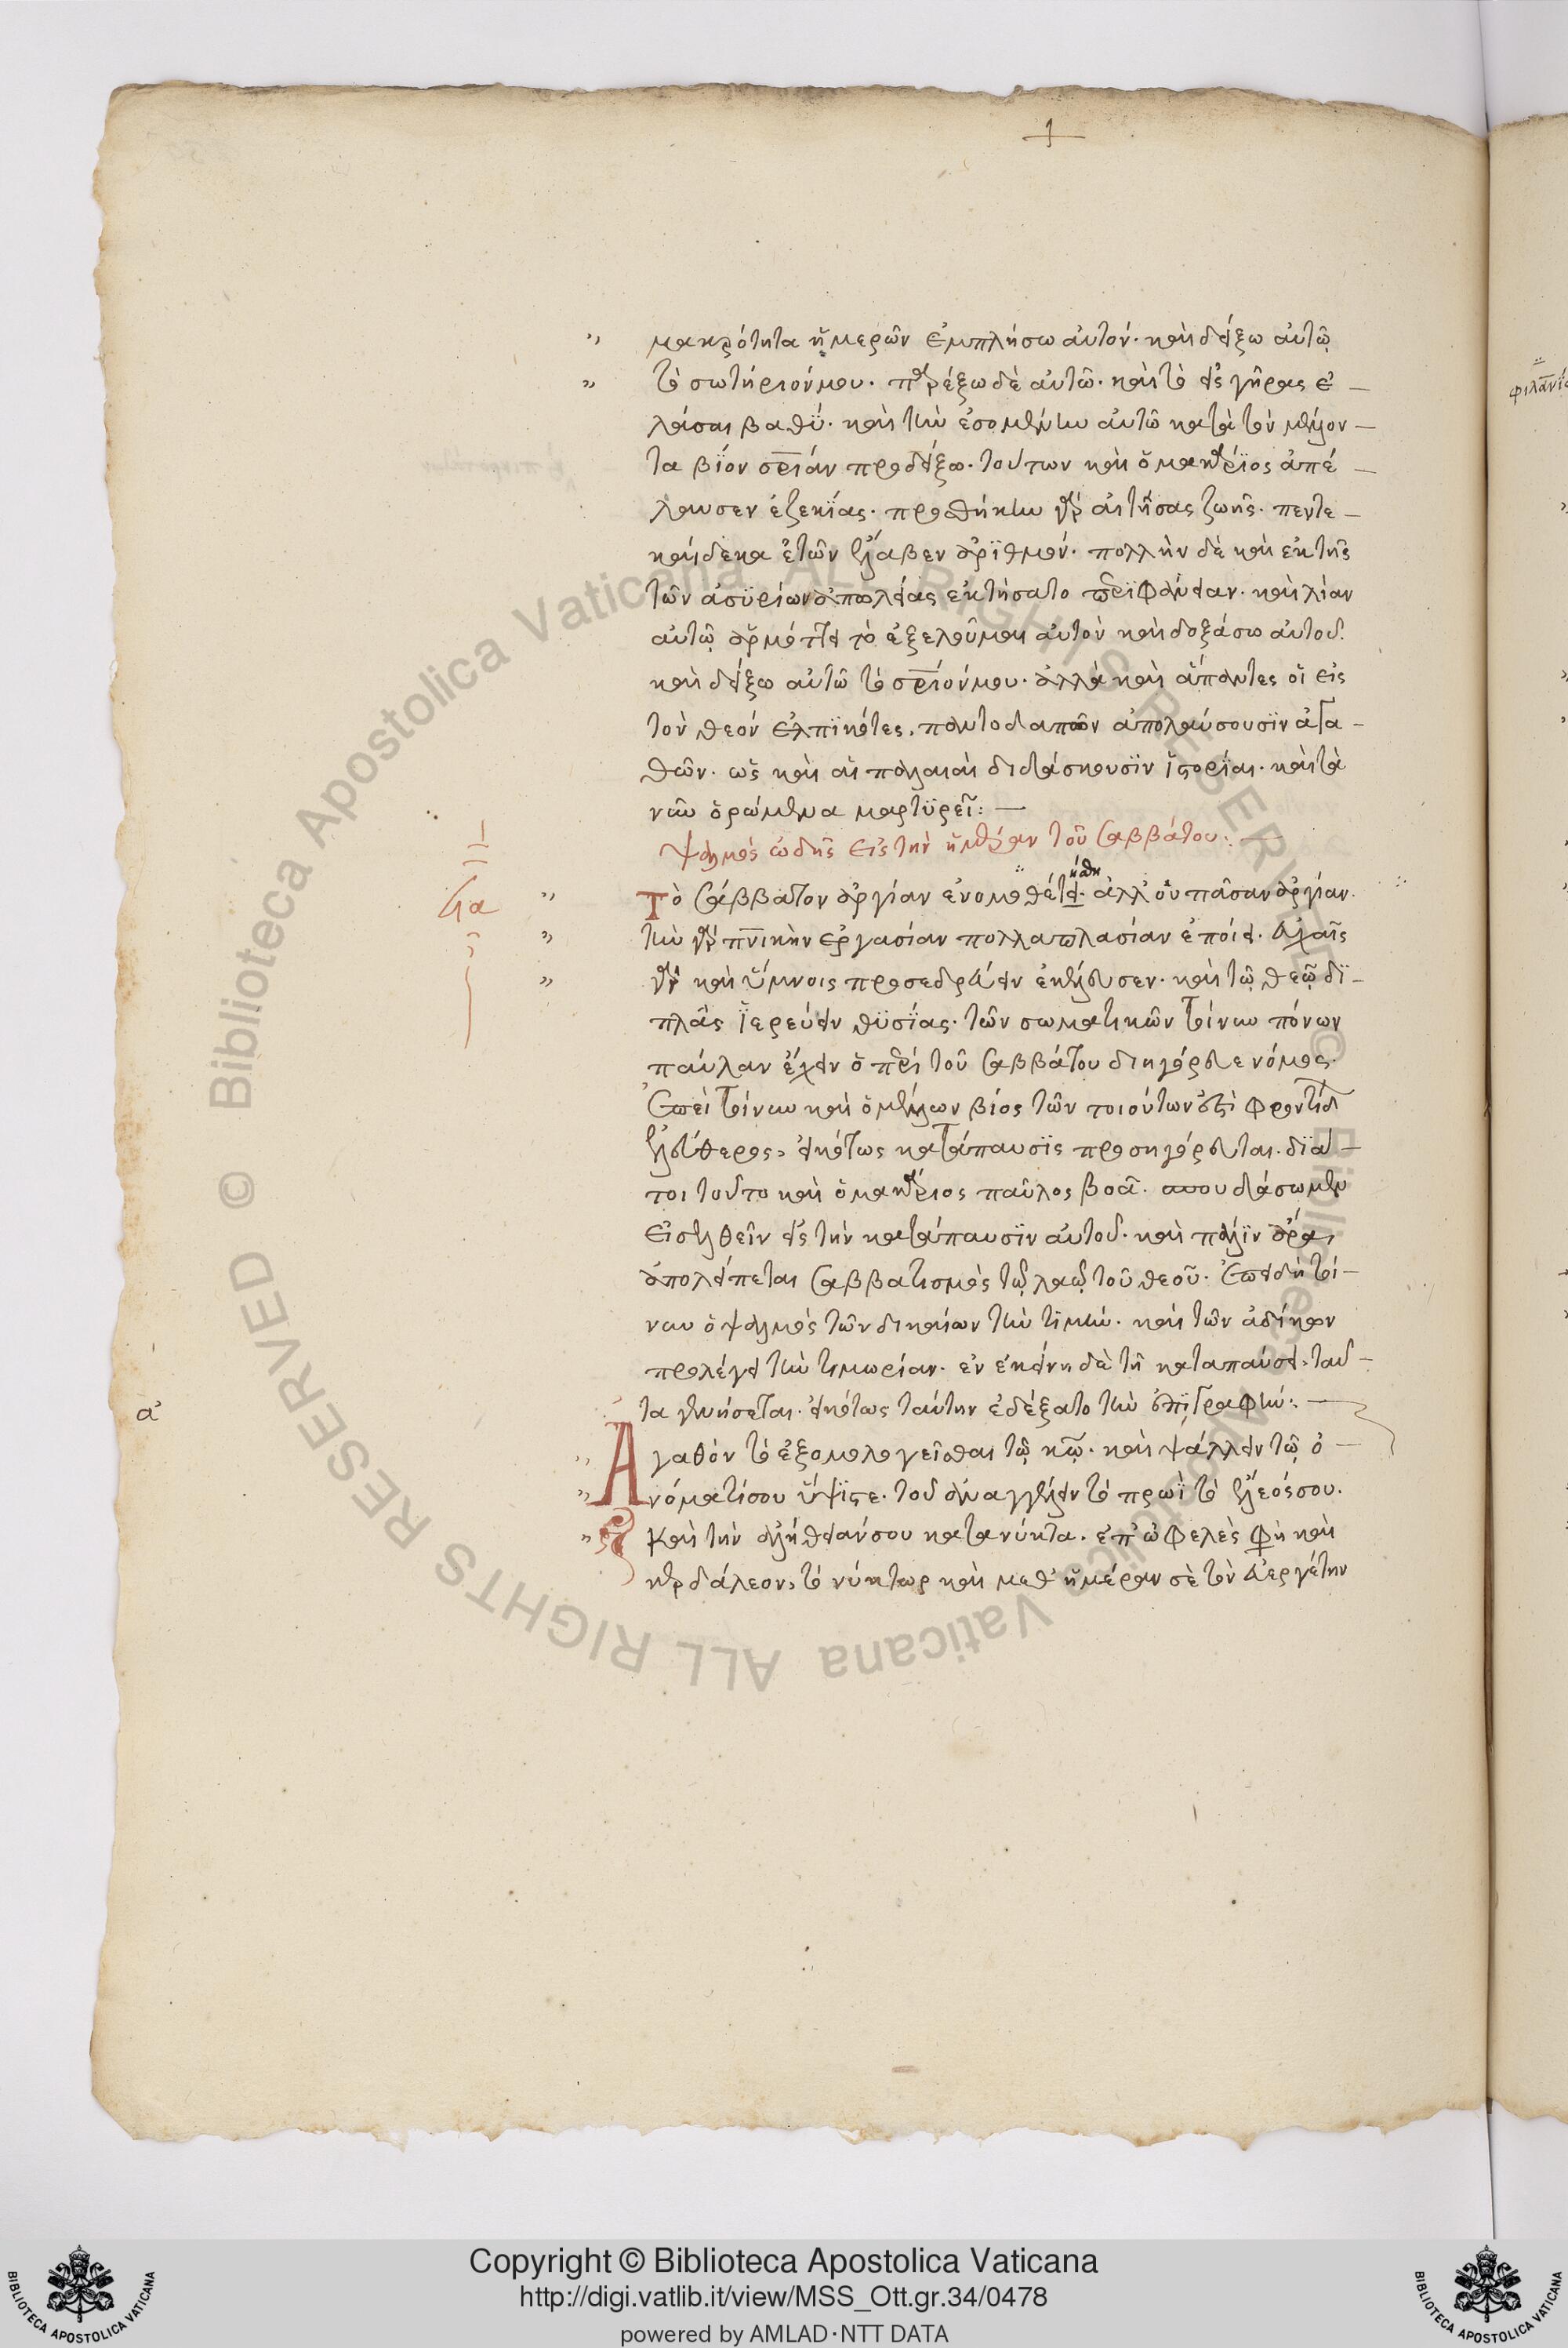 μακρότητα ἡμερῶν ἐμπλήσω αὐτόν· καὶ δείξω αὐτῷ
τὸ σωτήριόν μου· παρέξω δὲ αὐτῶ· καὶ τὸ εἰς γῆρας ἐ –
λάσαι βαθΰ· καὶ τὴν ἐσομένην αὐτῶ κατὰ τὸν μέλλον –
τα βίον σρίαν προδείξω· τούτων καὶ ὁ μακάριος ἀπέ –
λαυσεν ἐζεκίας· προσθήκην γὰρ αἰτήσας ζωῆς· πεντε –
καίδεκα ἐτῶν ἔλαβεν ἀρϊθμόν· πολλὴν δὲ καὶ ἐκ τῆς
τῶν ἀσϋρίων ἀπωλείας ἐκτήσατο περιφάνειαν· καὶ λίαν
αὐτῷ ἁρμόττει τὸ ἐξελοῦμαι αὐτὸν καὶ δοξάσω αὐτόν·
καὶ δείξω αὐτῶ τὸ σριόν μου· ἀλλὰ καὶ ἅπαντες οἱ εἰς
τὸν θεὸν ἐλπϊκότες, παντοδαπῶν ἀπολαύσουσϊν ἀγα –
θῶν· ὡς καὶ αἱ παλαιαὶ διδάσκουσϊν ἱστορίαι· καὶ τὰ
νῦν ὁρώμενα μαρτϋρεῖ: –
Ψαλμὸς ὠδῆς εἰς τὴν ἡμέραν τοῦ σαββάτου: –
Τὸ σάββατον ἀργίαν ἐνομοθέτει· ἀλλ' οὐ πᾶσαν ἀργίαν.
ϟα
τὴν γὰρ πνικὴν ἐργασίαν πολλαπλασίαν ἐποίει· εὐχαῖς
γὰρ καὶ ὕμνοις προσεδρεύειν ἐκέλευσεν· καὶ τῷ θεῷ δϊ –
πλᾶς ἱερεύειν θϋσίας· τῶν σωματικῶν τοίνυν πόνων
παύλαν ἔχειν ὁ περὶ τοῦ σαββάτου διηγόρευε νόμος·
ἐπεὶ τοίνυν καὶ ὁ μέλλων βίος τῶν τοιούτων ἐστὶ φροντίδων
ἐλεύθερος, εἰκότως κατάπαυσϊς προσηγόρευται· διά –
τοι τοῦτο καὶ ὁ μακάριος παῦλος βοᾶ· σπουδάσωμεν
εἰσελθεῖν εἰς τὴν κατάπαυσϊν αὐτοῦ· καὶ πάλϊν ἄρα,
ἀπολείπεται σαββατισμὸς τῷ λαῷ τοῦ θεοῦ· ἐπειδὴ τοί –
νυν ὁ ψαλμὸς τῶν δικαίων τὴν τιμήν· καὶ τῶν ἀδίκων
προλέγει τὴν τιμωρίαν· ἐν ἐκείνη δὲ τῆ καταπαύσει, ταῦ –
ἀ τα γενήσεται· εἰκότως ταύτην ἐδέξατο τὴν ἐπϊγραφήν: –
Ἀγαθὸν τὸ ἐξομολογεῖσθαι τῷ κῷ· καὶ ψάλλειν τῷ ὀ –
νόματί σου ὕψϊστε· τοῦ ἀναγγέλλειν τὸ πρωῒ τὸ ἔλεός σου.
Καὶ τὴν ἀλήθειάν σου κατὰ νύκτα· ἐπ' ὠφελὲς φη καὶ
κερδάλεον, τὸ νύκτωρ καὶ μεθ' ἡμέραν σὲ τὸν εὐεργέτην
Copyright © Biblioteca Apostolica Vaticana
http://digi.vatlib.it/view/MSS_Ott.gr.34/0478
powered by AMLAD·NTT DATA